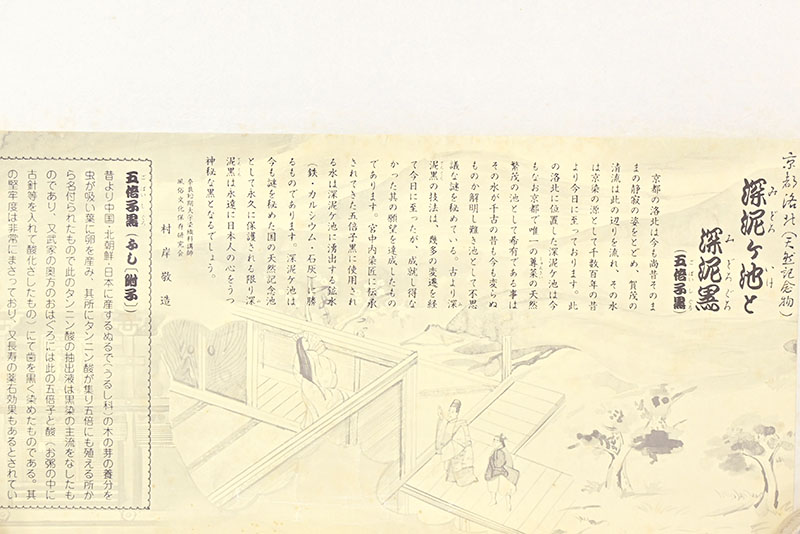 京都洛北(天然記念物)
深泥ヶ池と
みどろ いけ
深泥黒
みどろぐろ
(五倍子黒)
ごばいしぐろ
京都の洛北は今も尚昔そのま
まの静寂の姿をとどめ、賀茂の
清流は此の辺りを流れ、その水
は京染の源として千数百年の昔
より今日に至っております。此
の洛北に位置した深泥ケ池は今
もなお京都で唯一の蓴菜の天然
繁茂の池として希有である事は
その水が千古の昔も今も変らぬ
ものか解明し難き池として不思
議な謎を秘めている。古より深
泥黒の技法は、幾多の変遷を経
て今日に至ったが、成就し得な
かった其の願望を達成したもの
であります。宮中内染匠に伝承
されてきた五倍子黒に使用され
る水は深泥ケ池に湧出する鉱水
(鉄・カルシウム・石灰)に勝
るものであります。深泥ケ池は
今も謎を秘めた国の天然記念池
として永久に保護される限り深
泥黒は永遠に日本人の心をうつ
神秘な黒となるでしょう。
奈良短期大学染織科講師
風俗文化保存研究会
村岸敬造
五倍子黒(ふし〔附子〕)
昔より中国・北朝鮮・日本に産するぬるで(うるし科)の木の芽の養分を
虫が吸い葉に卵を産み、其所にタンニン酸が集り五倍にも殖える所か
ら名付られたもので此のタンニン酸の抽出液は黒染の主流をなしたも
のであり、又武家の奥方のおはぐろには此の五倍子と酸(お粥の中に
古針等を入れて酸化さしたもの)にて歯を黒く染めたものである。其
の堅牢度は非常にまさっており、又長寿の薬石効果もあるとされてい